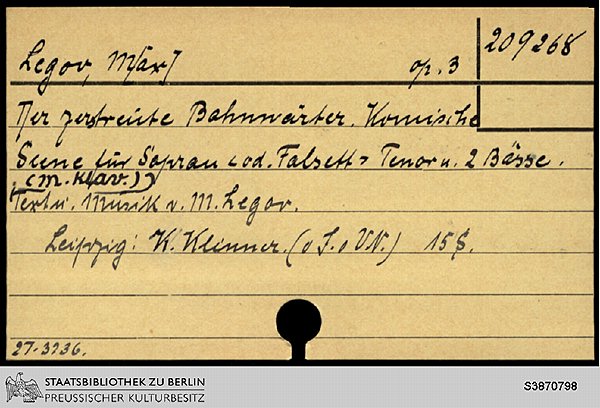 209268
Legov, M[ax] op. 3
Der zerstreute Bahnwärter. Komische
Scene für Sopran <od. Falsett> Tenor u. 2 Bässe.
(m. Klav.)
Text u. Musik v. M. Legov.
Leipzig: K. Klinner. (o J. o VN.) 15 S.
27-3236.
STAATSBIBLIOTHEK ZU BERLIN
PREUSSISCHER KULTURBESITZ
S3870798